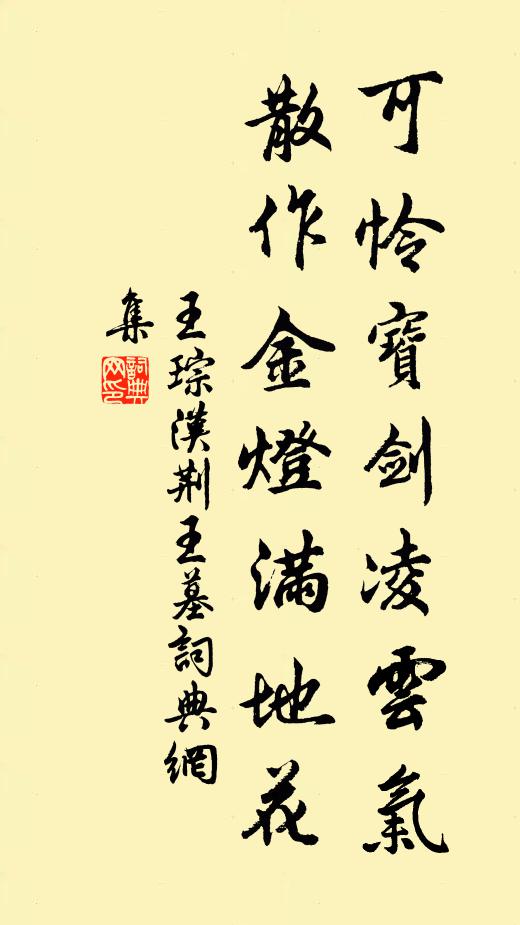 可怜寶劍凌雲氣
散作金燈滿地花
王琮漢荆王墓詞典網
集
詞典
网印